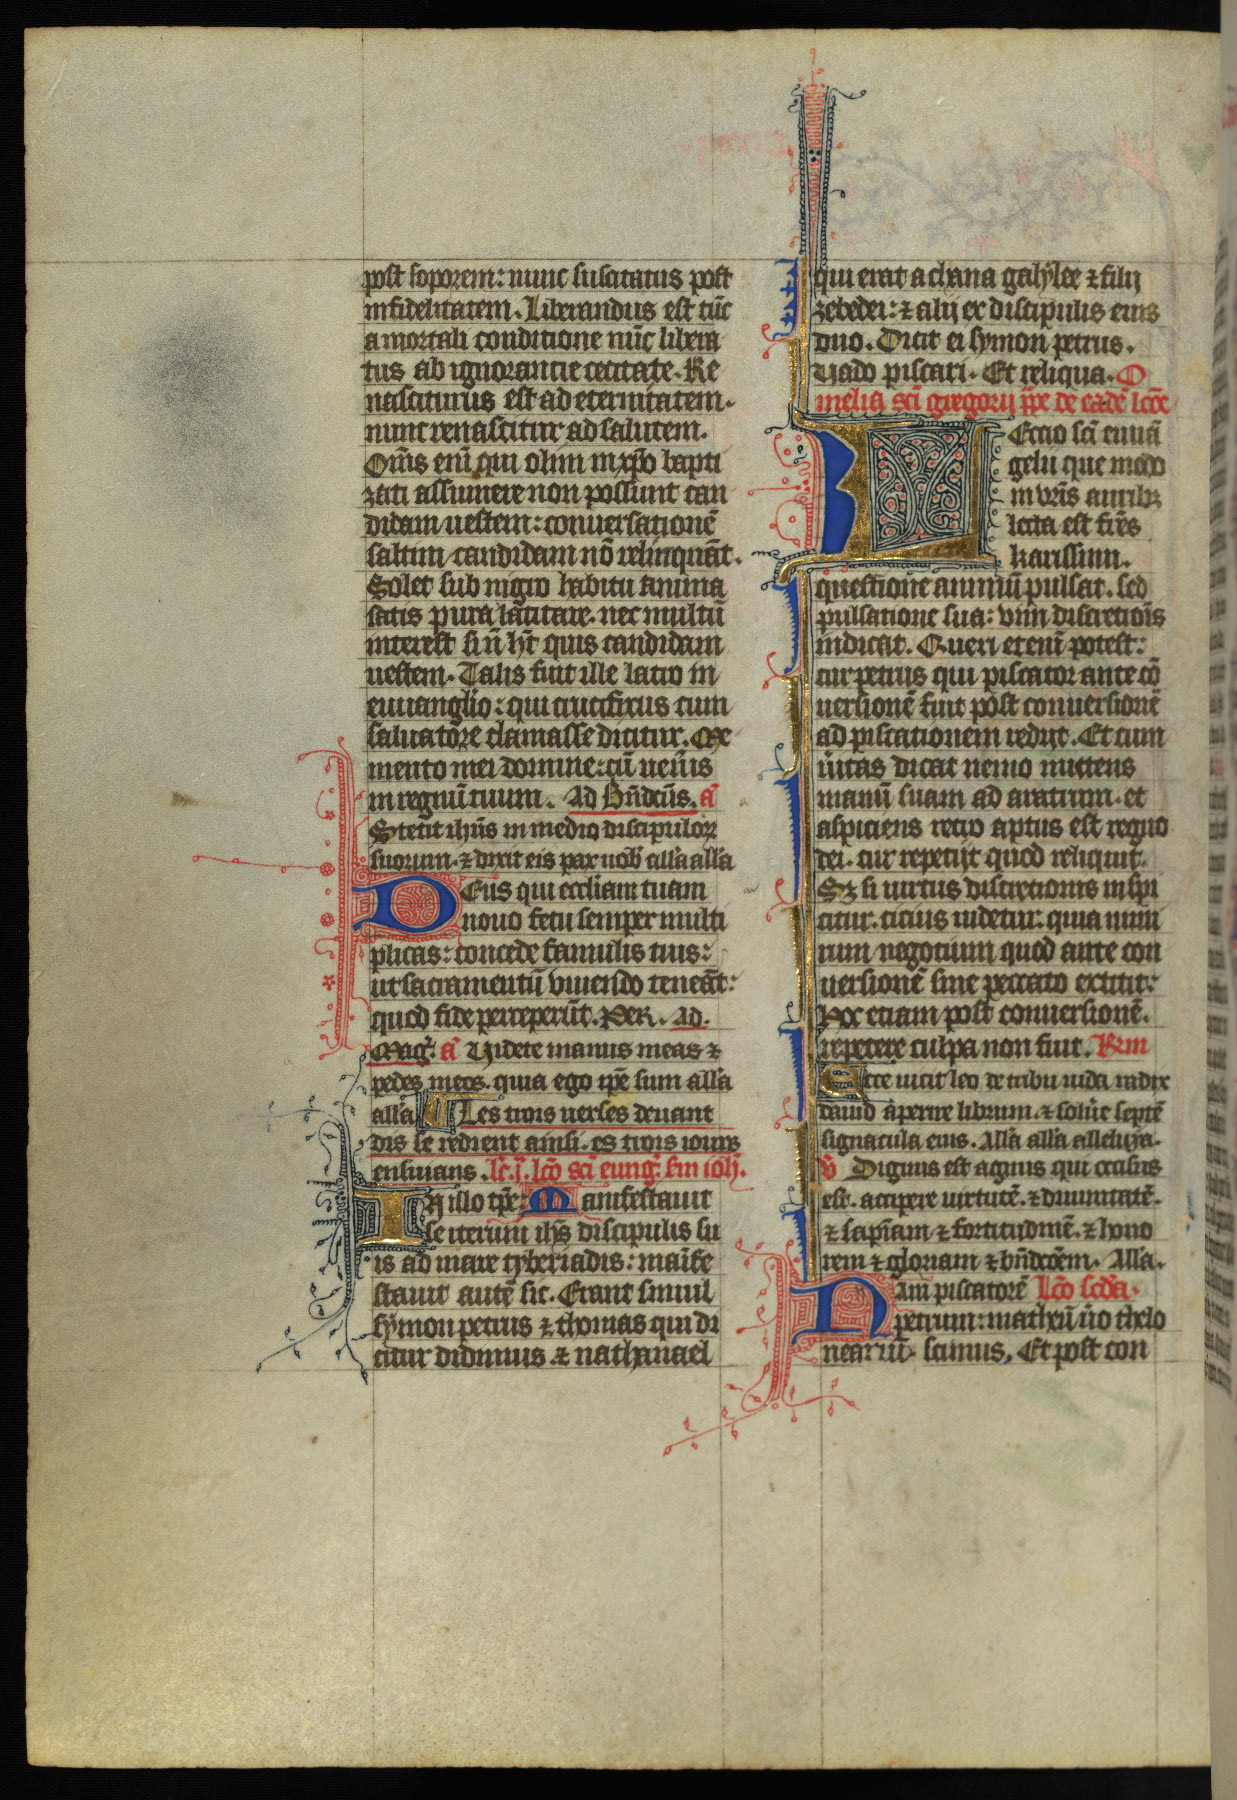 post soporem: nunc suscitatus post
infidelitatem. Liberandus est tūc
a mortali conditione nūc libera
tus ab ignorantie cecitate. Re
nasciturus est ad eternitatem.
nunc renascitur ad salutem.
Om̄s enī qui olim in xp̄o bapti
zati assumere non possunt can
didam uestem: conuersationē
saltim candidam nō relinquāt.
Solet sub nigro habitu anima
satis pura latitare. nec multū
interest si n̄ ht̄ quis candidam
uestem. Talis fuit ille latro in
euuanglio: qui crucifixus cum
saluatore clamasse dicitur. Me
mento mei domine: cū ueneris
in regnū tuum. Ad Bn̄dcūs. a᷒
Stetit ihūs in medio discipuloꝝ
suorum. ⁊ dixit eis pax uob̄ all'a all'a
Deus qui eccl̄iam tuam
nouo fetu semper multi
plicas: concede famulis tuis:
ut sacramentū viuendo teneāt:
quod fide perceperūt. Per. Ad.
Mag᷒. a᷒ Videte manus meas ⁊
pedes meos. quia ego ip̄e sum all'a
all'a Les trois uerses deuant
dis se redient ainsi. es trois iours
ensuians. lc̄. j. lc̄o sc̄i euuḡ. sm̄ ioh̄.
In illo tp̄e: Manifestauit
se iterum ih̄s discipulis su
is ad mare tyberiadis: manife
stauit autē sic. Erant simul
symon petrus ⁊ thomas qui di
citur didimus ⁊ nathanael
qui erat a chana galylee ⁊ filij
zebedei: ⁊ alij ex discipulis eius
duo. Dicit ei symon petrus.
Uado piscari. Et reliqua. O
melia sc̄i gregorij p̄pe de eadē lcōe
Lectio sc̄i euuā
gelij que modo
in vr̄is aurib;
lecta est fr̄es
karissim.
questione animū pulsat. sed
pulsatione sua: vim discretiōis
indicat. Queri etenī potest:
cur petrus qui piscator ante cō
uersionē fuit post conuersionē
ad piscationem redijt. Et cum
u̇itas dicat nemo mittens
manū suam ad aratrum. et
aspiciens retro aptus est regno
dei. cur repetijt quod reliquit.
Sꝫ si uirtus discretionis inspi
citur. citius uidetur: quia nimi
rum negotium quod ante con
uersionē sine peccato extitit:
Hoc etiam post conuersionē.
repetere culpa non fuit. Rm
Ecce uicit leo de tribu iuda radix
dauid aperire librum. ⁊ solu̇e septē
signacula eius. All'a all'a alleluya.
v᷒ Dignus est agnus qui occisus
est. accipere uirtutē. ⁊ diuinitatē.
⁊ sapīam ⁊ fortitudinē. ⁊ hono
rem ⁊ gloriam ⁊ bn̄dcōem. All'a.
Nam piscatorē Lc̄o scd̄a.
petrum: mathēū u̇o thelo
nearium scimus. Et post con